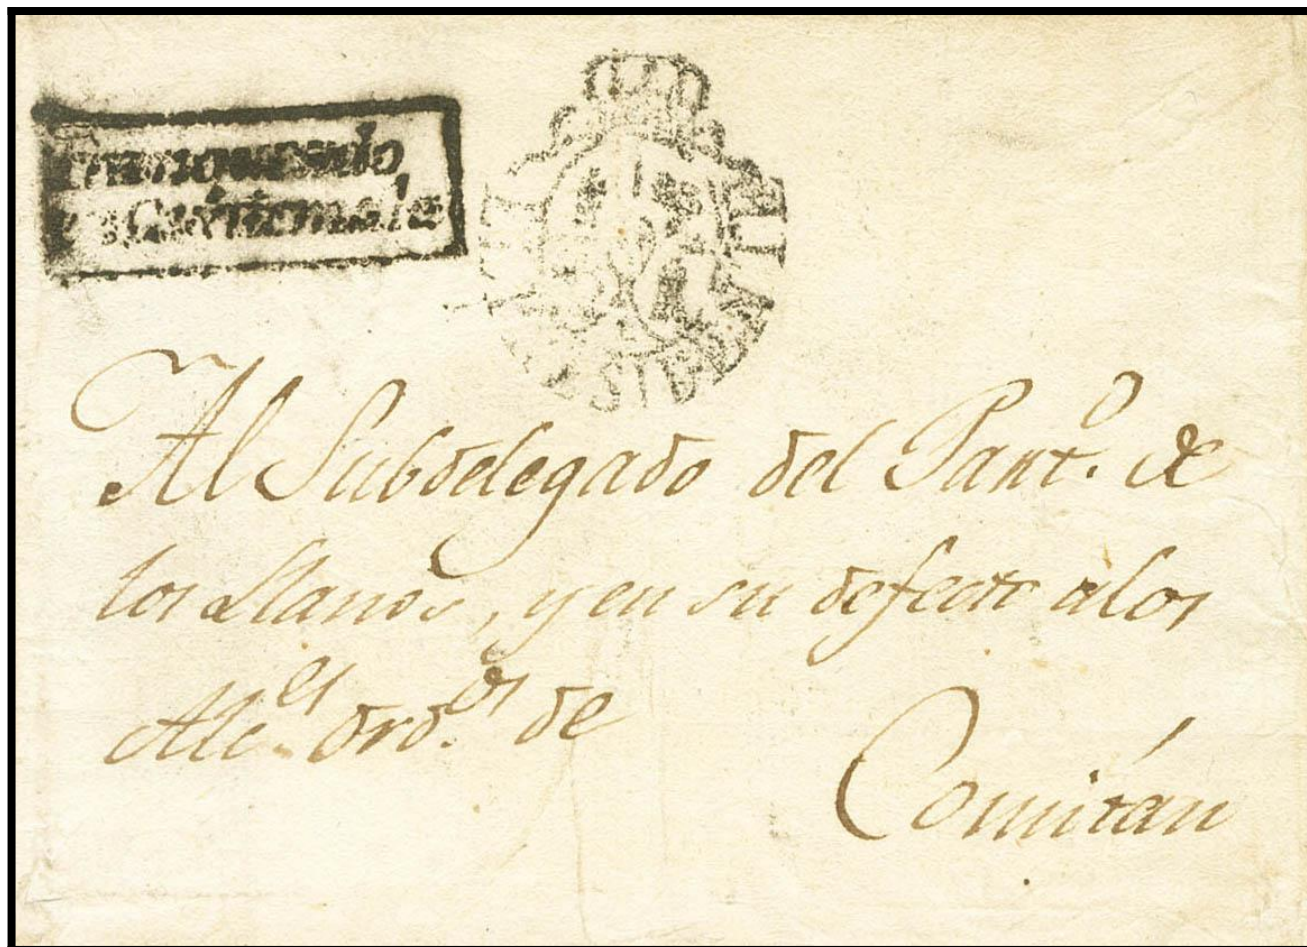 Guatemala
Al Subdelegado del Part.º de
los Llanos, y en su defecto a los
Alc.es ord.os de
Comitán